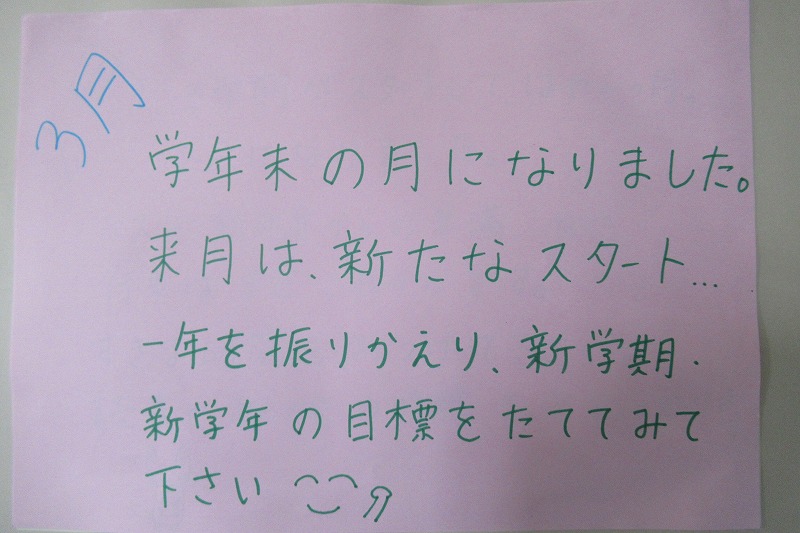 3月
学年末の月になりました。
来月は、新たなスタート...
一年を振りかえり、新学期・
新学年の目標をたててみて
下さい